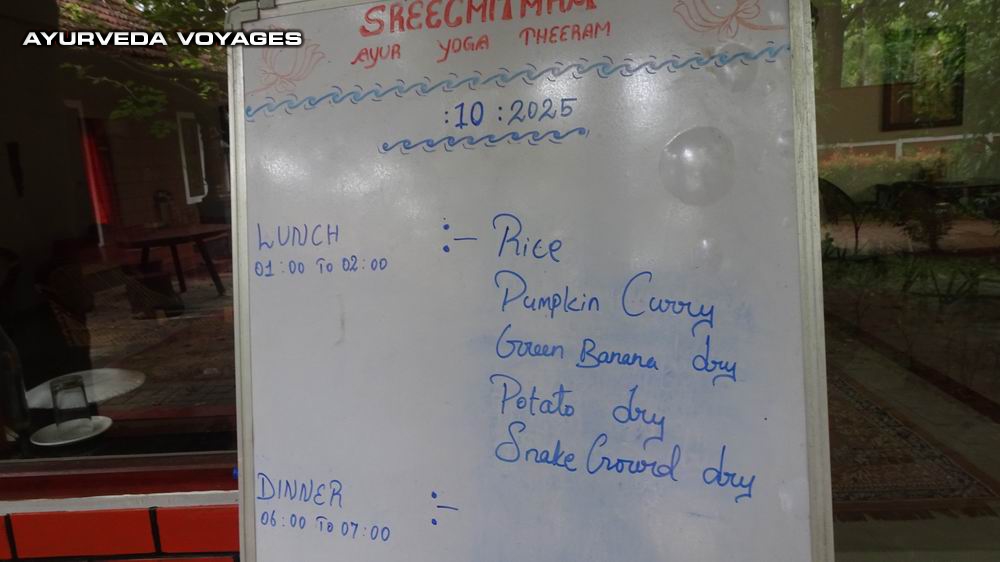 AYURVEDA VOYAGES
AYUR YOGA THEERAM
:10 :2025
LUNCH :- Rice
01:00 To 02:00
Pumpkin Curry
Green Banana dry
Potato dry
Snake Grourd dry
DINNER :-
06:00 To 07:00